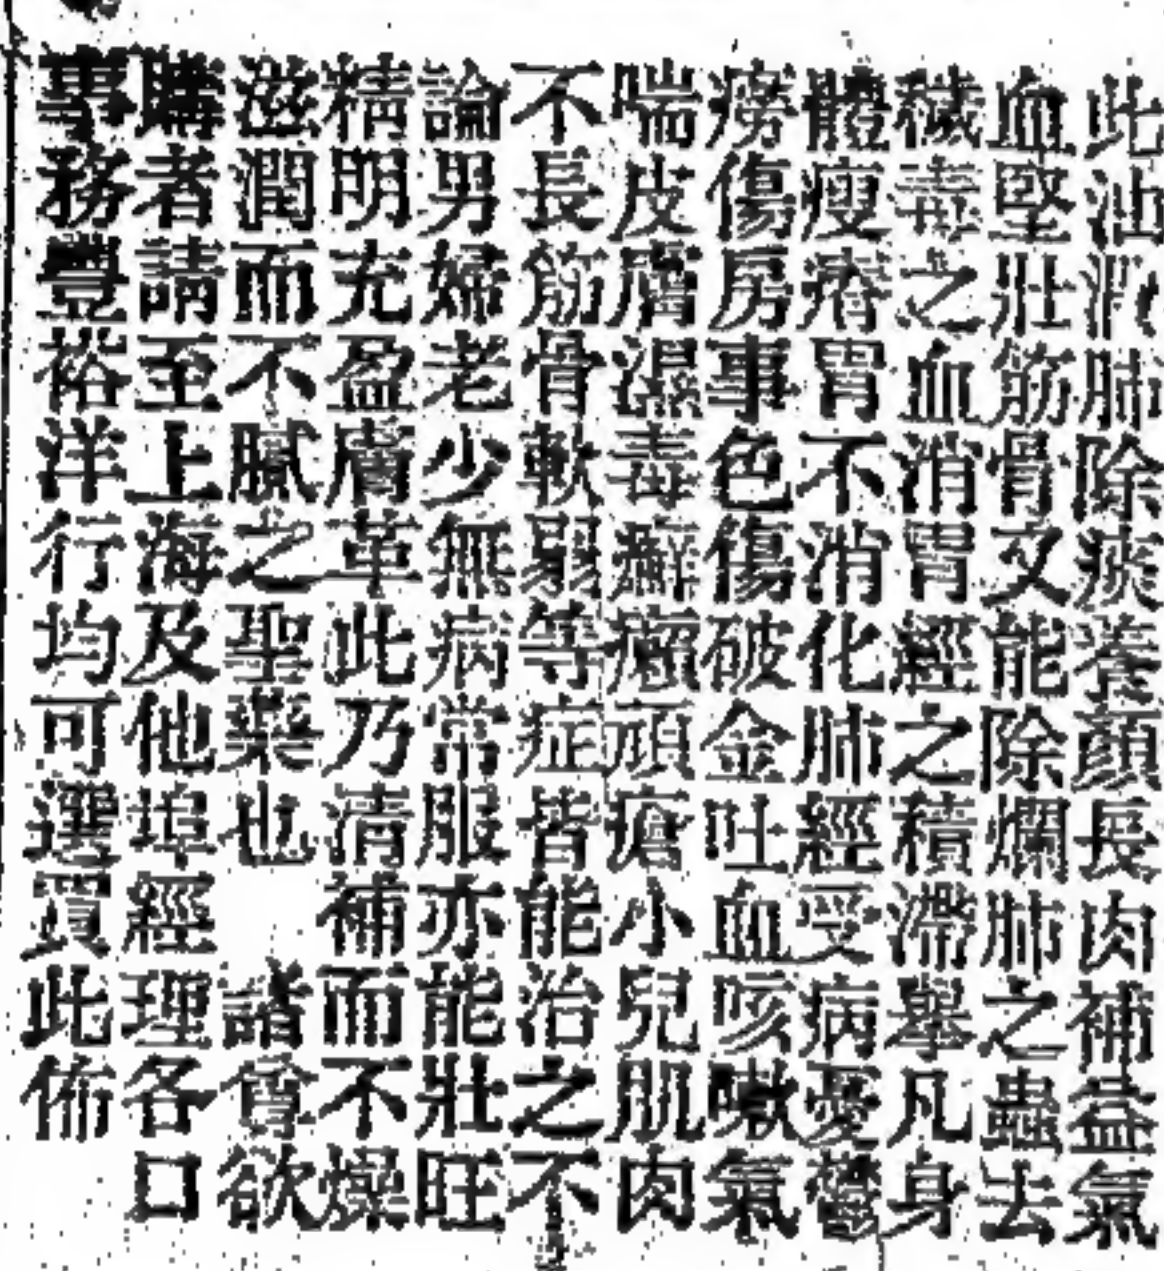 此油潤肺除痰養顏長肉補益氣
血堅壯筋骨又能除爛肺之蟲去
穢毒之血消胃經之積滯舉凡身
體瘦瘠胃不消化肺經受病憂鬱
癆傷房事色傷破金吐血咳嗽氣
喘皮膚濕毒癬癩頑瘡小兒肌肉
不長筋骨軟弱等症皆能治之不
論男婦老少無病常服亦能壯旺
精明充盈膚革此乃清補而不燥
滋潤而不膩之聖藥也 諸會欲
購者請至上海及他埠經理各口
專務豐裕洋行均可選買此佈